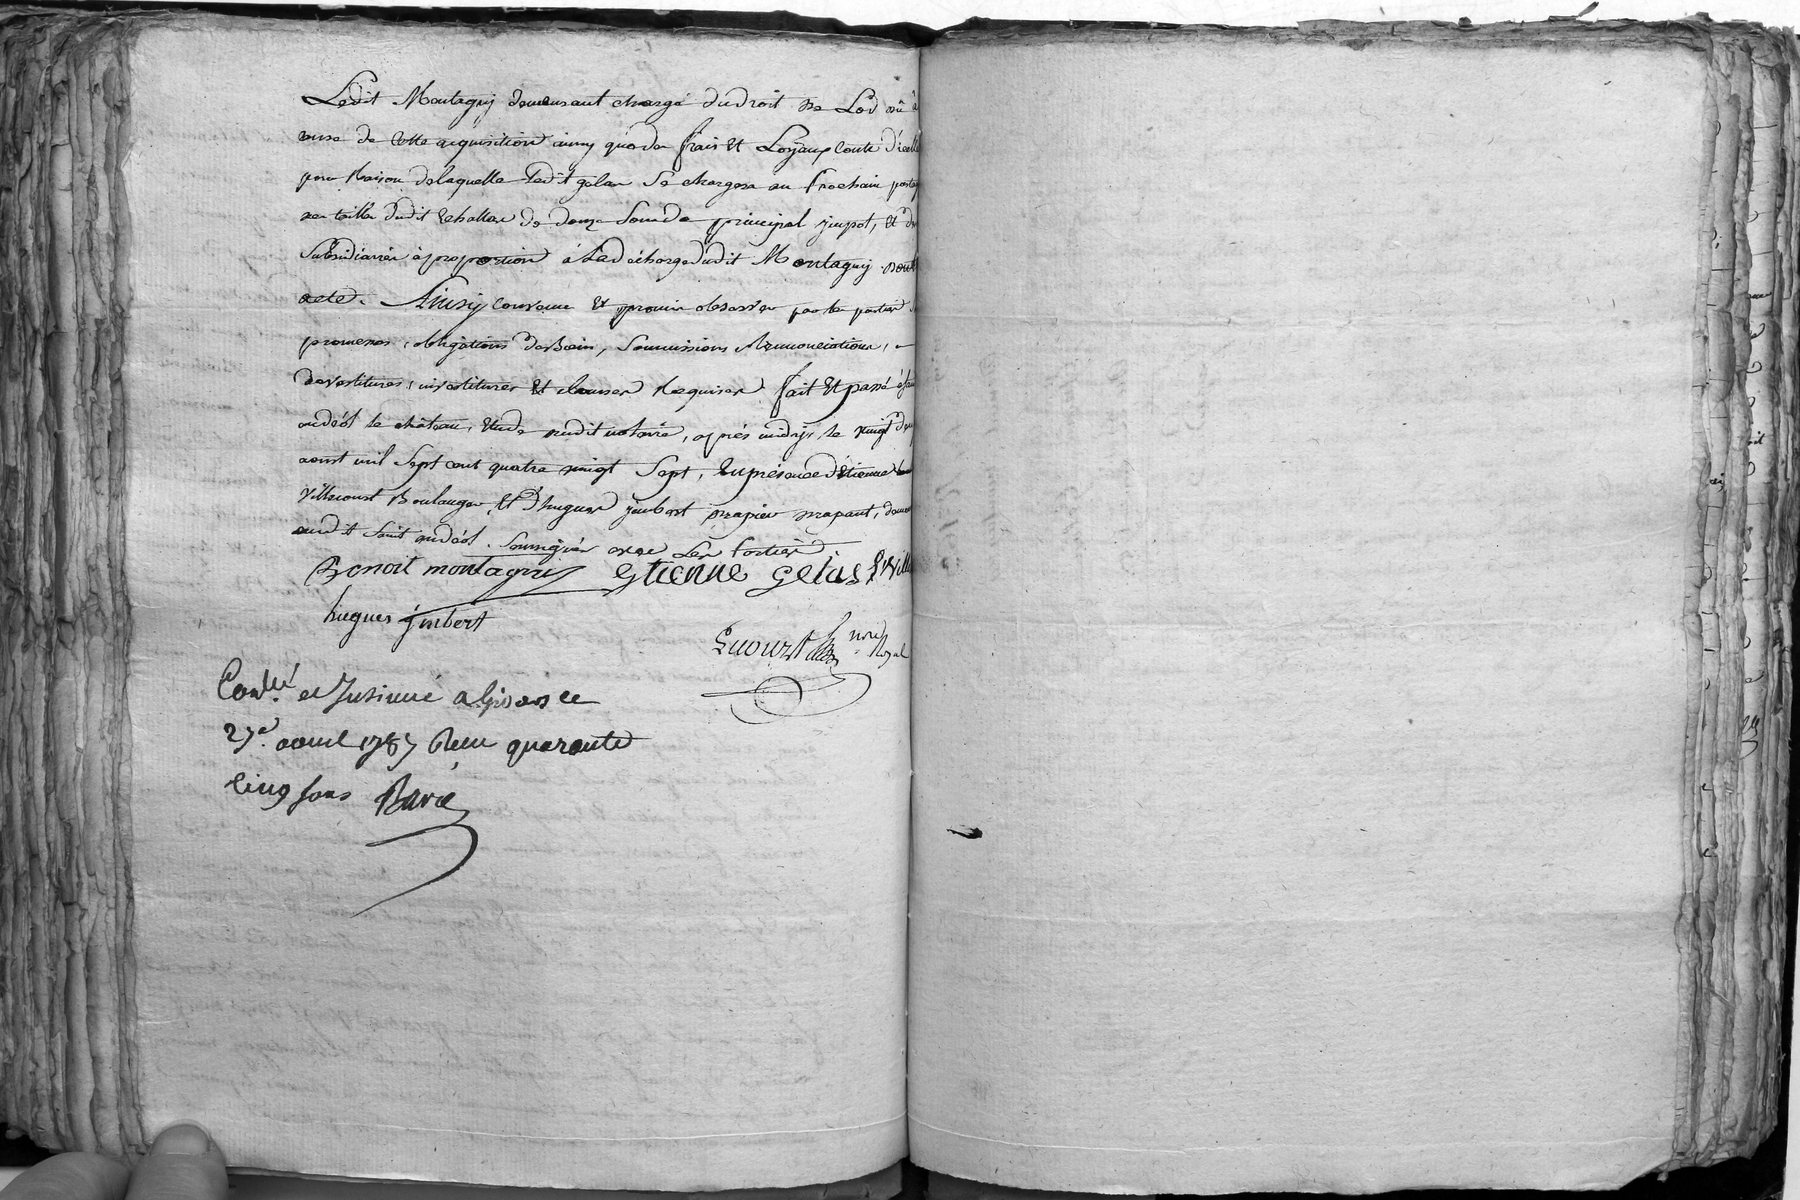 Ledit Montaguy demeurant chargé du droit de Lod dû à
cause de cette acquisition ainsy que des frais et Loyaux couts d'icelle
pour Raison de laquelle Ledit gelas se chargera au prochain
taille dudit de douze sous de principal impot, et des
subsidiaires à proportion à La décharge dudit Montaguy
acte. Ainsy convenu et promis observer par les parties
promesses, obligations de Biens, soumissions Renonciations,
devestitures, investitures et clauses Requises. fait et passé à saint
andéol le château, étude dudit notaire, après midy, le vingt deux
aoust mil sept cent quatre vingt sept, en présence d'Etienne
Villecourt Boulanger, et d'hugues jmbert drapier drapant,
audit saint andéol. soussignés avec Les Parties
Benoit montaguy Etienne gelas
hugues jmbert
nore Royal
Conllé et Insinué a Givors ce
27e. aoust 1787 Reçu quarante
cinq sous